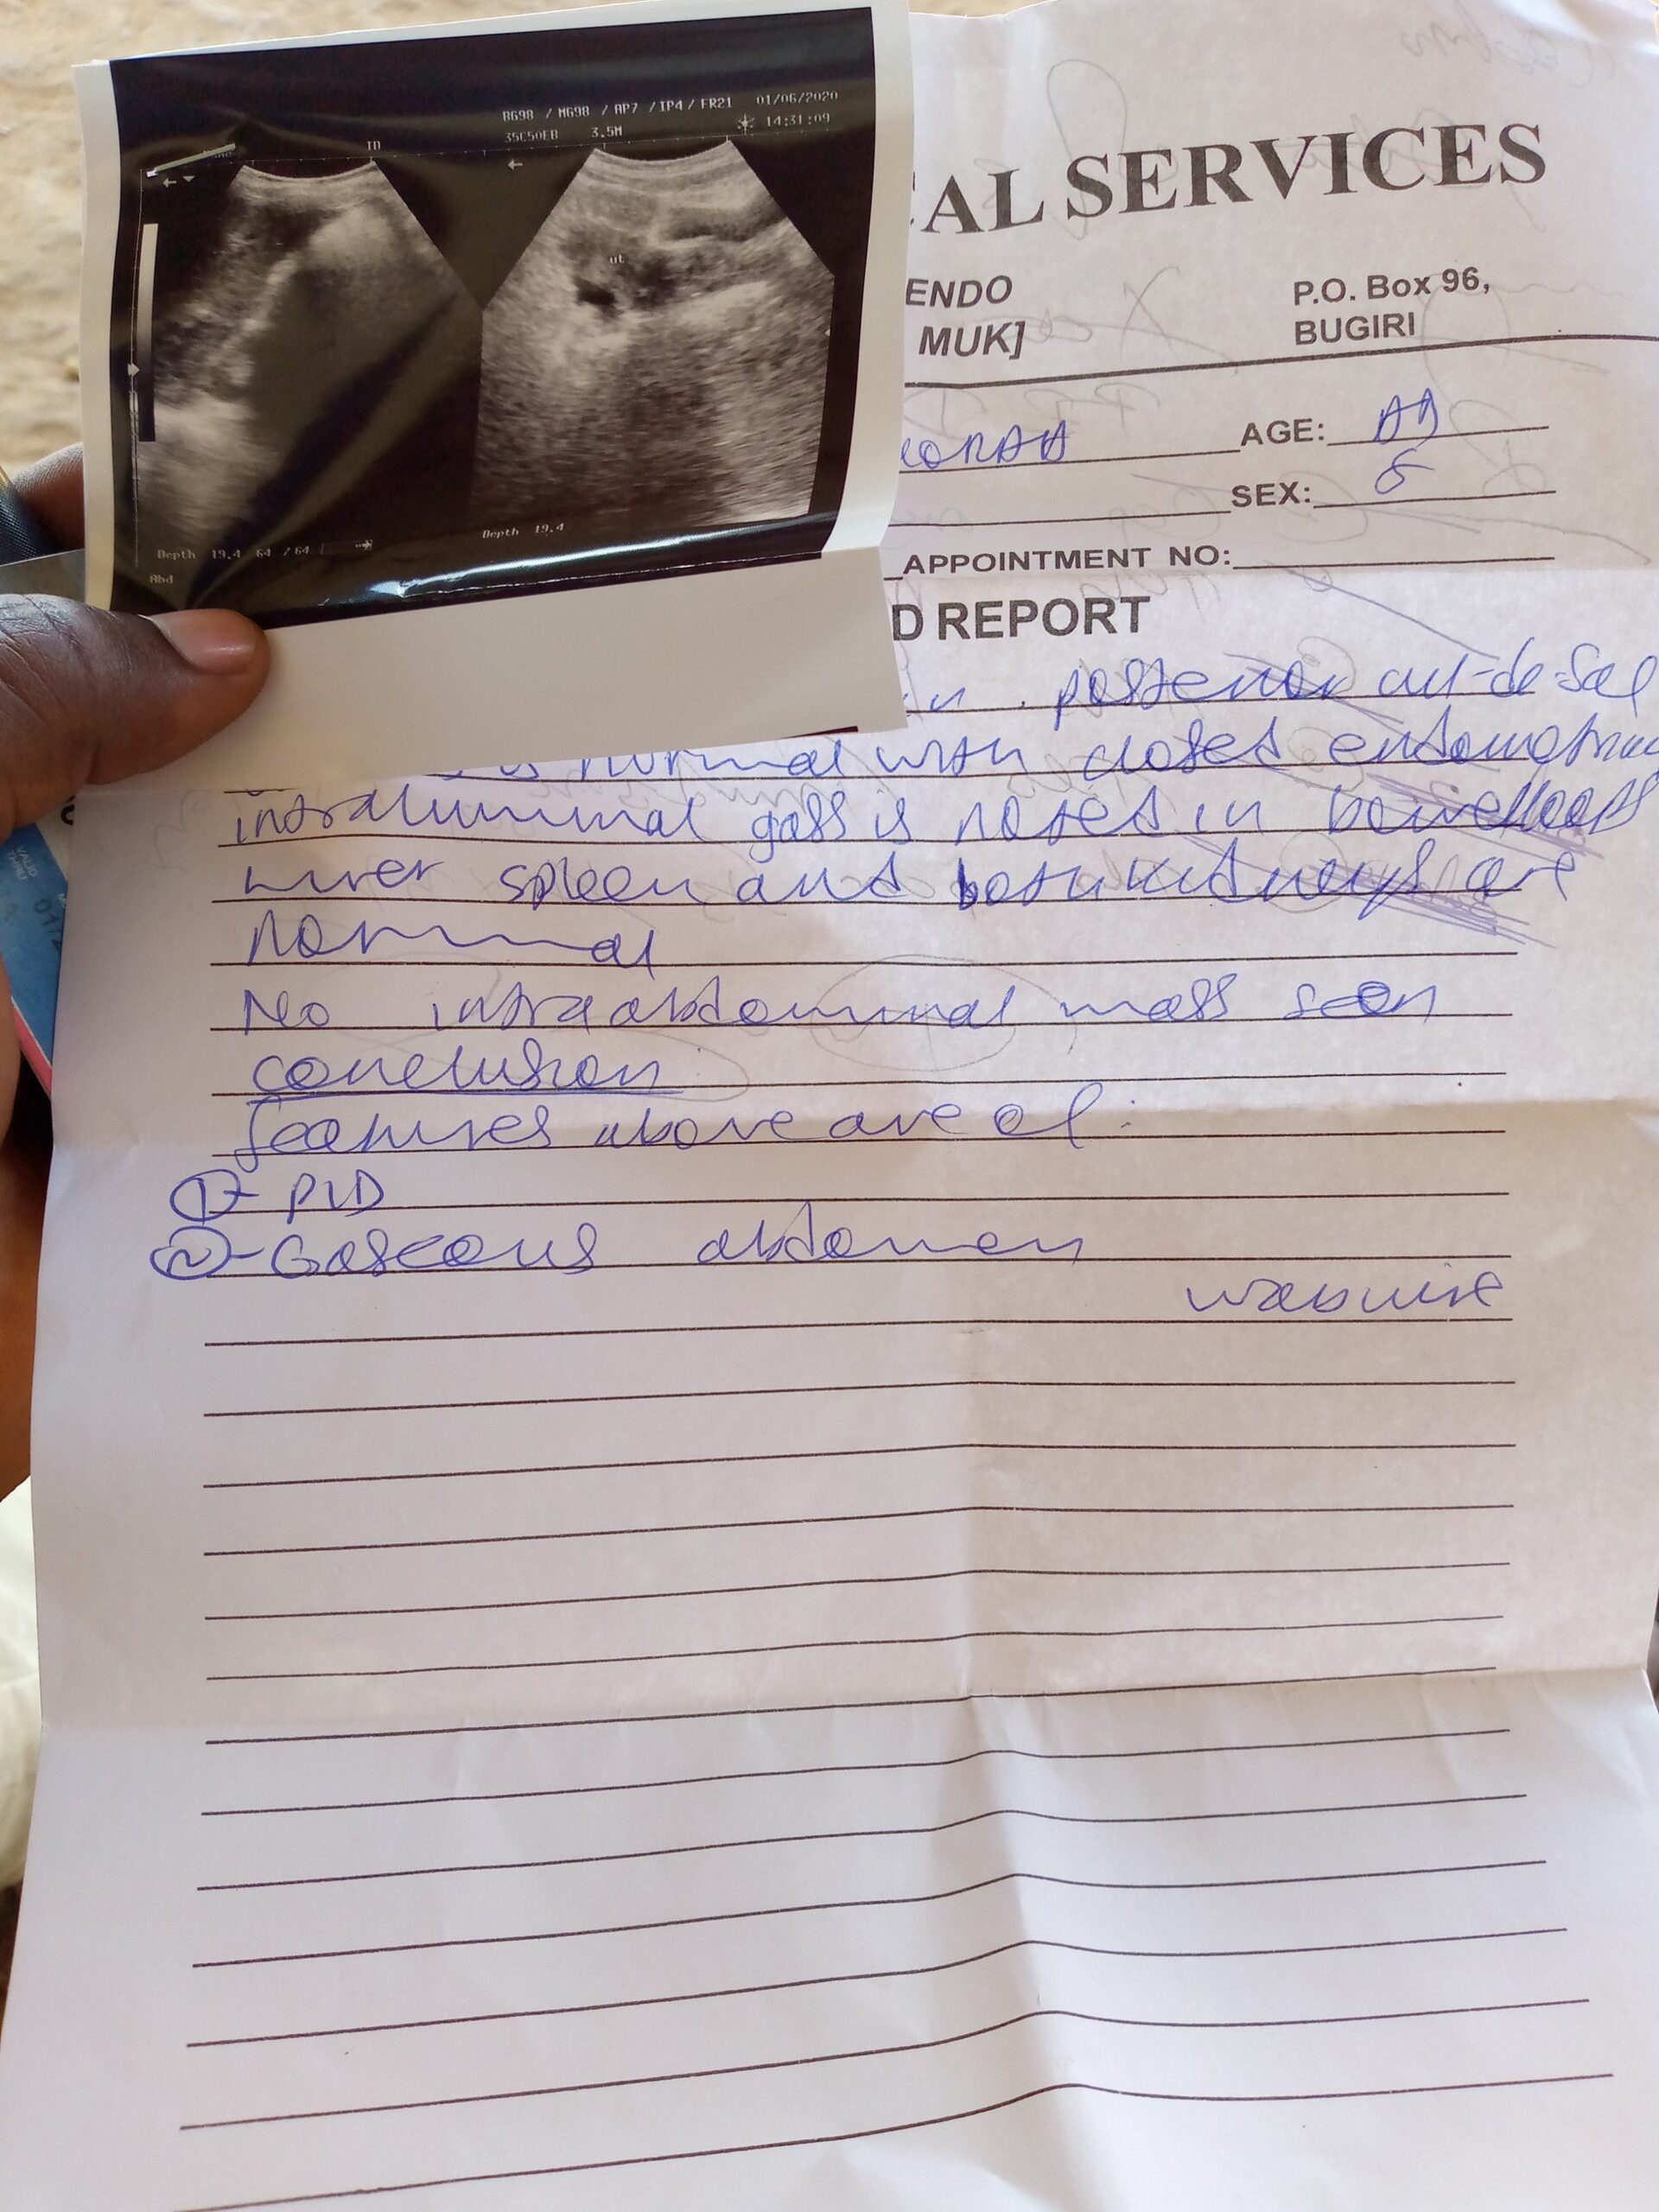 BG98 / MG98 / AP7 / IP4 / FR21 01/06/2020
35C50EB 3.5M 14:31:09
ut
Depth 19.4 64 / 64
Depth 19.4
Abd
CAL SERVICES
ENDO
MUK]
P.O. Box 96,
BUGIRI
AGE: AD
SEX: F
APPOINTMENT NO:
D REPORT
in posterior cul-de-sac
is normal with closed
intraluminal gass is noted in bowelloops
Liver spleen and both kidneys are
Normal
No intraabdominal mass seen
conclusion
features above are of :
1 - PID
2 - Gaseous abdomen